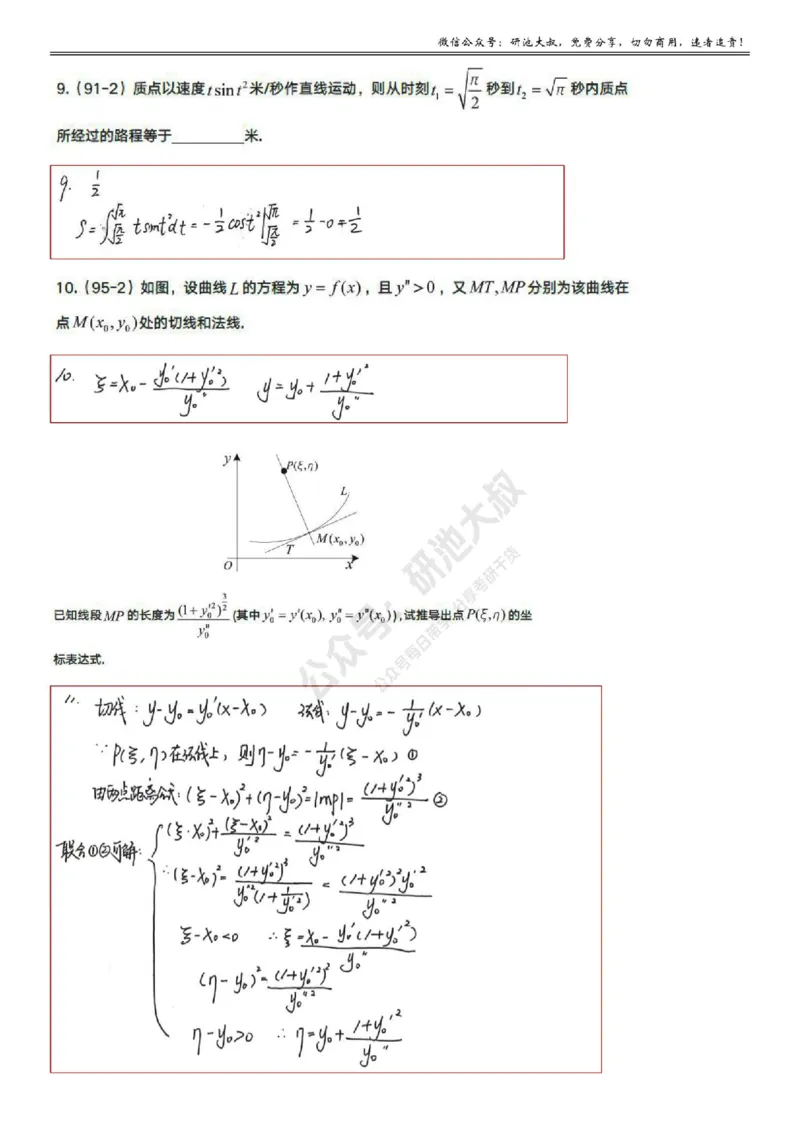 微信公众号：研池大叔，免费分享，切勿商用，违者追责！
9.（91-2）质点以速度 t sin t² 米/秒作直线运动，则从时刻 t₁ = √(π/2) 秒到 t₂ = √π 秒内质点
所经过的路程等于________米.
9. 1/2
S=∫_{√(π/2)}^{√π} t sint² dt = -1/2 cost² |_{√(π/2)}^{√π} = 1/2 - 0 = 1/2
10.（95-2）如图，设曲线 L 的方程为 y = f(x)，且 y″ > 0，又 MT, MP 分别为该曲线在
点 M(x₀, y₀) 处的切线和法线.
10. ξ=x₀ - y₀′(1+y₀′²)/y₀″  y=y₀+ (1+y₀′²)/y₀″
y
P(ξ,η)
L
M(x₀,y₀)
T
O
x
已知线段 MP 的长度为 (1+y₀′²)^{3/2}/y₀″ (其中 y₀′ = y′(x₀), y₀″ = y″(x₀)),试推导出点 P(ξ,η) 的坐
标表达式.
11. 切线：y-y₀=y₀′(x-x₀)  法线：y-y₀=- 1/y₀′ (x-x₀)
∵ P(ξ,η)在法线上，则 η-y₀=- 1/y₀′ (ξ-x₀) ①
由两点距离公式：(ξ-x₀)²+(η-y₀)²=|mp|= (1+y₀′²)³/y₀″² ②
联合①②可解：{ (ξ-x₀)²+ (ξ-x₀)²/y₀′² = (1+y₀′²)³/y₀″²
∴(ξ-x₀)²= (1+y₀′²)³/y₀″²(1+1/y₀′²) = (1+y₀′²)²y₀′²/y₀″²
ξ-x₀<0  ∴ξ=x₀- y₀′(1+y₀′²)/y₀″
(η-y₀)²= (1+y₀′²)²/y₀″²
η-y₀>0  ∴η=y₀+ (1+y₀′²)/y₀″
公众号：研池大叔
公众号每日带学分享考研干货